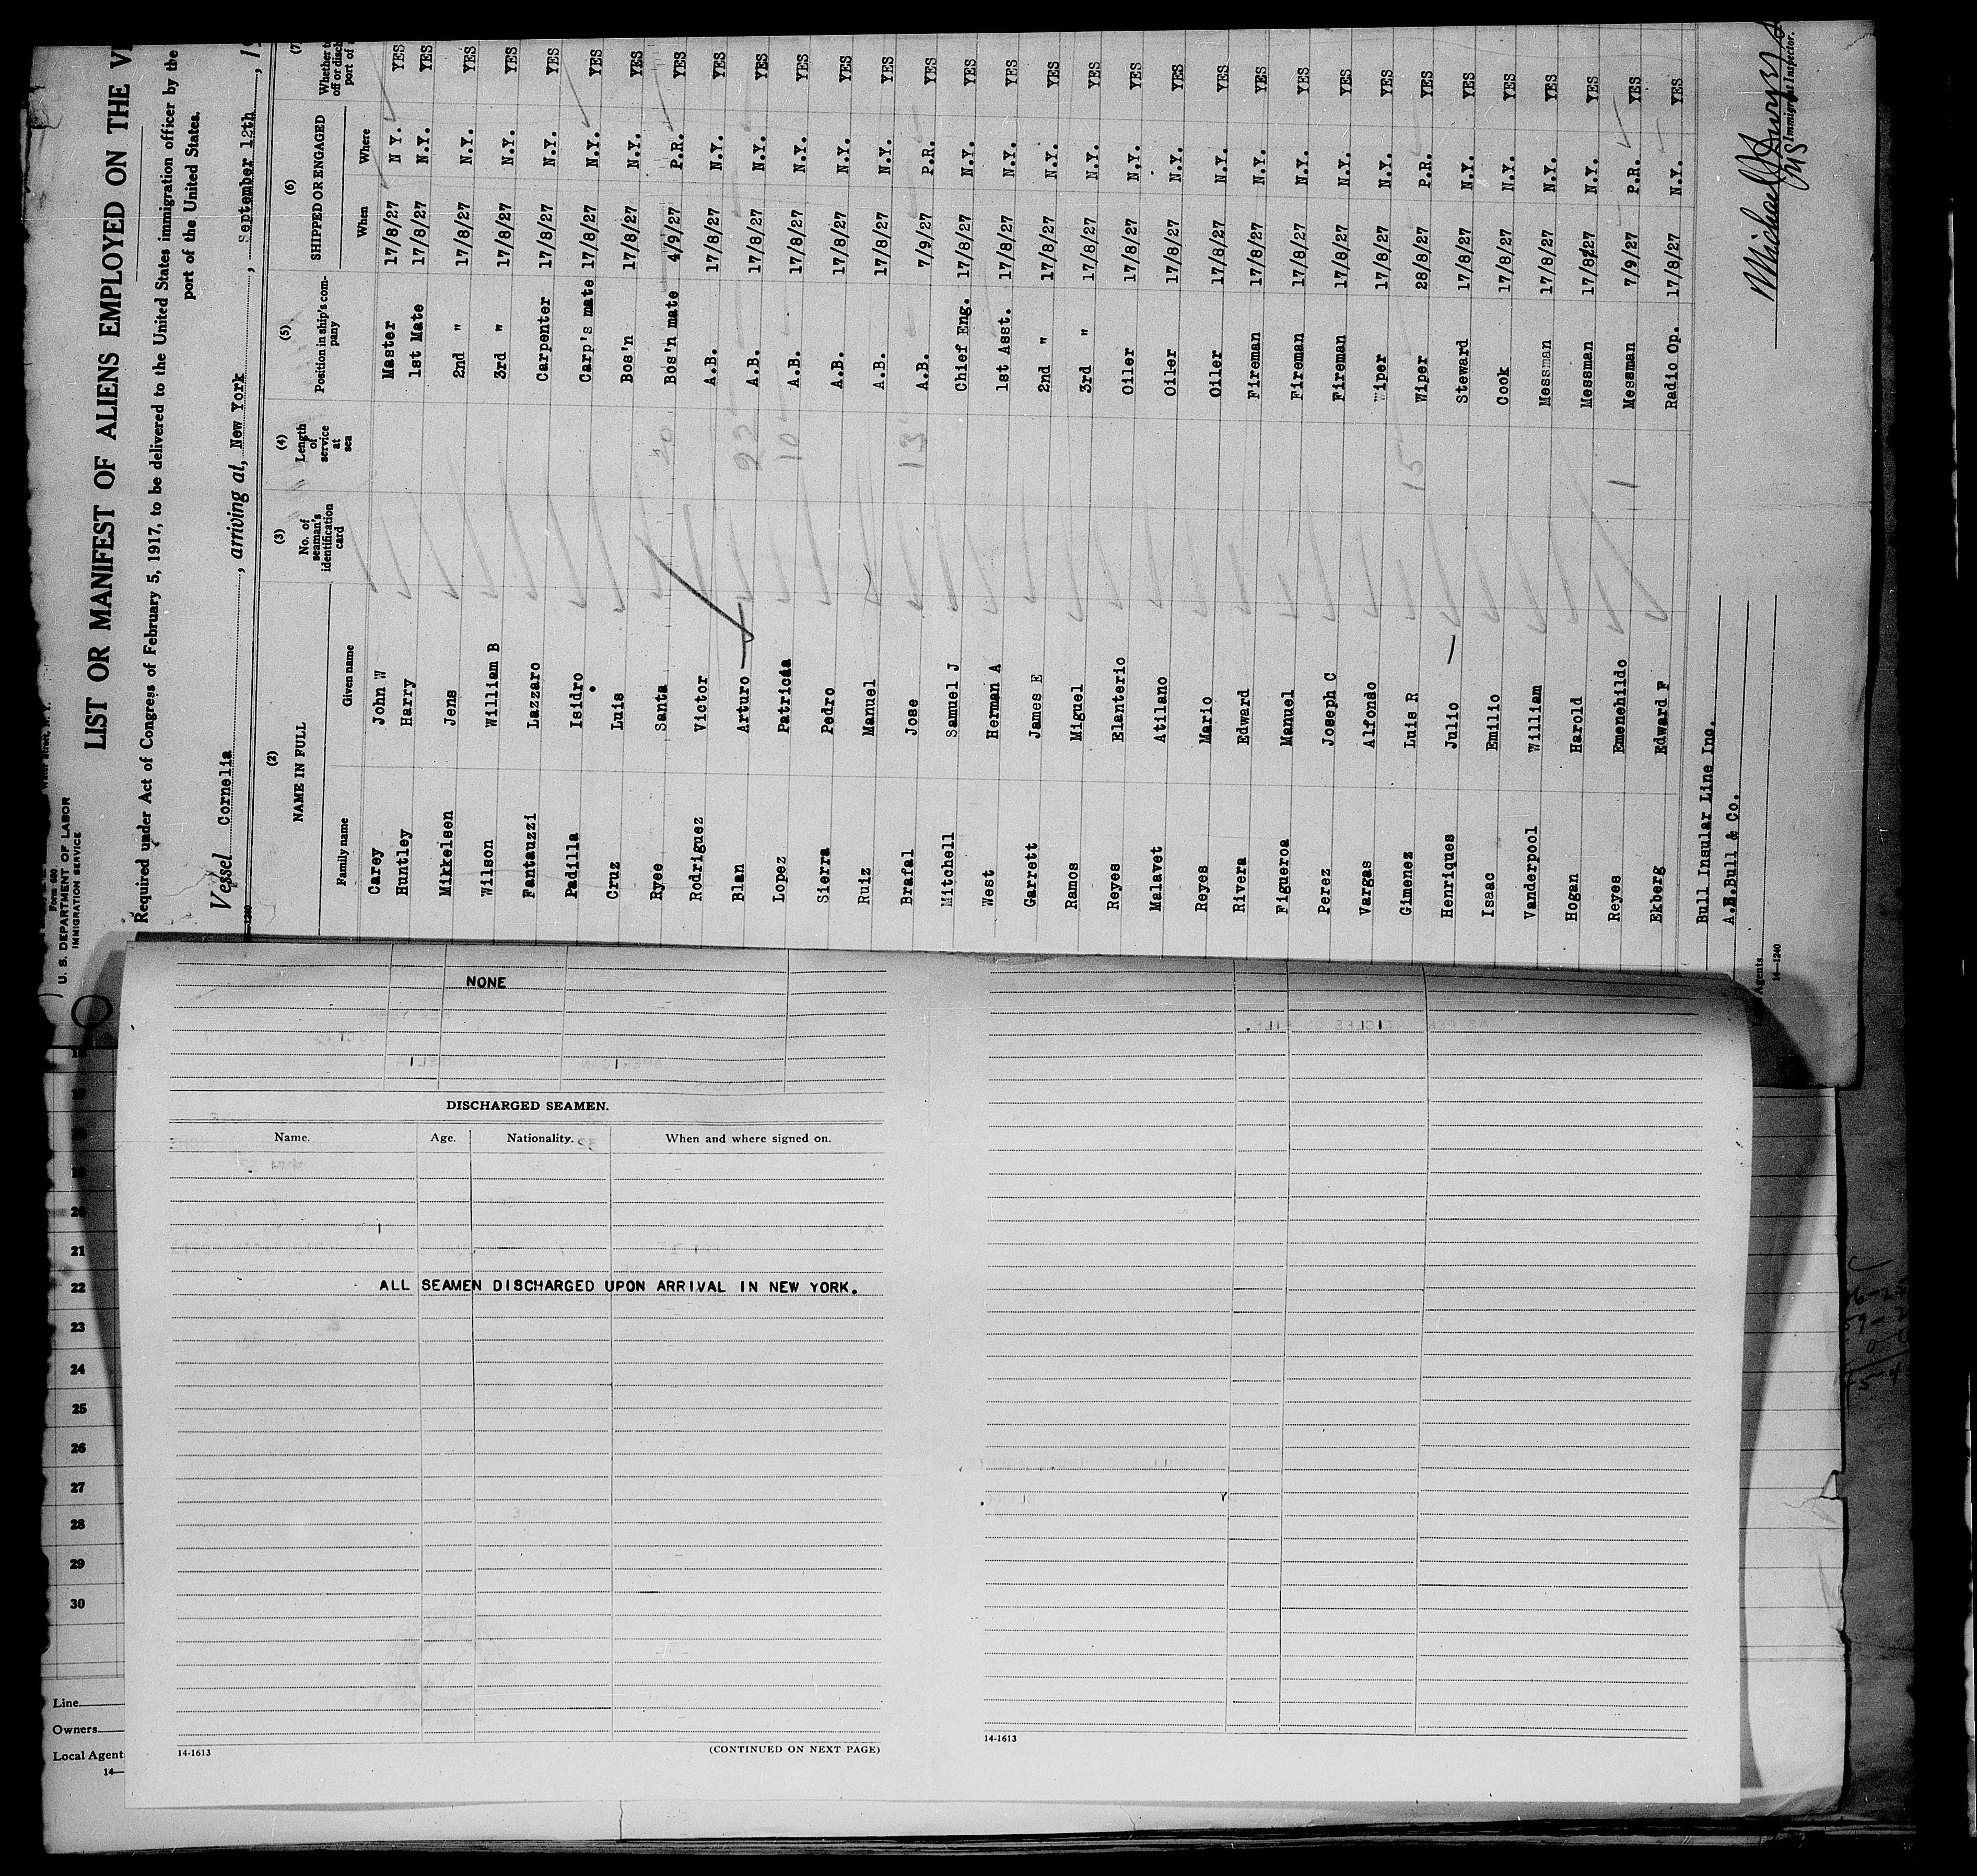 Form 680
U. S. DEPARTMENT OF LABOR
IMMIGRATION SERVICE
LIST OR MANIFEST OF ALIENS EMPLOYED ON THE
Required under Act of Congress of February 5, 1917, to be delivered to the United States immigration officer by the
port of the United States.
Vessel Cornelia, arriving at, New York, September 12th, 19
(2) (3) (4) (5) (6) (7)
NAME IN FULL No. of seaman's identification card Length of service at sea Position in ship's company SHIPPED OR ENGAGED
Family name Given name When Where
Carey John W Master 17/8/27 N Y. YES
Huntley Harry 1st Mate 17/8/27 N.Y. YES
Mikkelsen Jens 2nd " 17/8/27 N.Y. YES
Wilson William B 3rd " 17/8/27 N.Y. YES
Fantauzzi Lazzaro Carpenter 17/8/27 N.Y. YES
Padilla Isidro Carp's mate 17/8/27 N.Y. YES
Cruz Luis Bos'n 17/8/27 N.Y. YES
Ryee Santa 20 Bos'n mate 4/9/27 P.R. YES
Rodriguez Victor A.B. 17/8/27 N.Y. YES
Blan Arturo 22 A.B. 17/8/27 N.Y. YES
Lopez Patricia 10 A.B. 17/8/27 N.Y. YES
Sierra Pedro A.B. 17/8/27 N.Y. YES
Ruiz Manuel A.B. 17/8/27 N.Y. YES
Brafal Jose 12 A.B. 7/9/27 P.R. YES
Mitchell Samuel J Chief Eng. 17/8/27 N.Y. YES
West Herman A 1st Asst. 17/8/27 N.Y. YES
Garrett James E 2nd " 17/8/27 N.Y. YES
Ramos Miguel 3rd " 17/8/27 N.Y. YES
Reyes Elanterio Oiler 17/8/27 N.Y. YES
Malavet Atilano Oiler 17/8/27 N.Y. YES
Reyes Mario Oiler 17/8/27 N.Y. YES
Rivera Edward Fireman 17/8/27 N.Y. YES
Figueroa Manuel Fireman 17/8/27 N.Y. YES
Perez Joseph C Fireman 17/8/27 N.Y. YES
Vargas Alfondo Wiper 17/8/27 N.Y. YES
Gimenez Luis R 15 Wiper 28/8/27 P.R. YES
Henriques Julio Steward 17/8/27 N.Y. YES
Isaac Emilio Cook 17/8/27 N.Y. YES
Vanderpool William Messman 17/8/27 N.Y. YES
Hogan Harold Messman 17/8/27 N.Y. YES
Reyes Emenehildo 1 Messman 7/9/27 P.R. YES
Ekberg Edward F Radio Op. 17/8/27 N.Y. YES
Bull Insular Line Inc.
A.H.Bull & Co.
Agents
14—1240
Immigrant Inspector.
NONE
DISCHARGED SEAMEN.
Name. Age. Nationality. When and where signed on.
ALL SEAMEN DISCHARGED UPON ARRIVAL IN NEW YORK.
14-1613 (CONTINUED ON NEXT PAGE)
14-1613
20
21
22
23
24
25
26
27
28
29
30
Line
Owners
Local Agent
14—